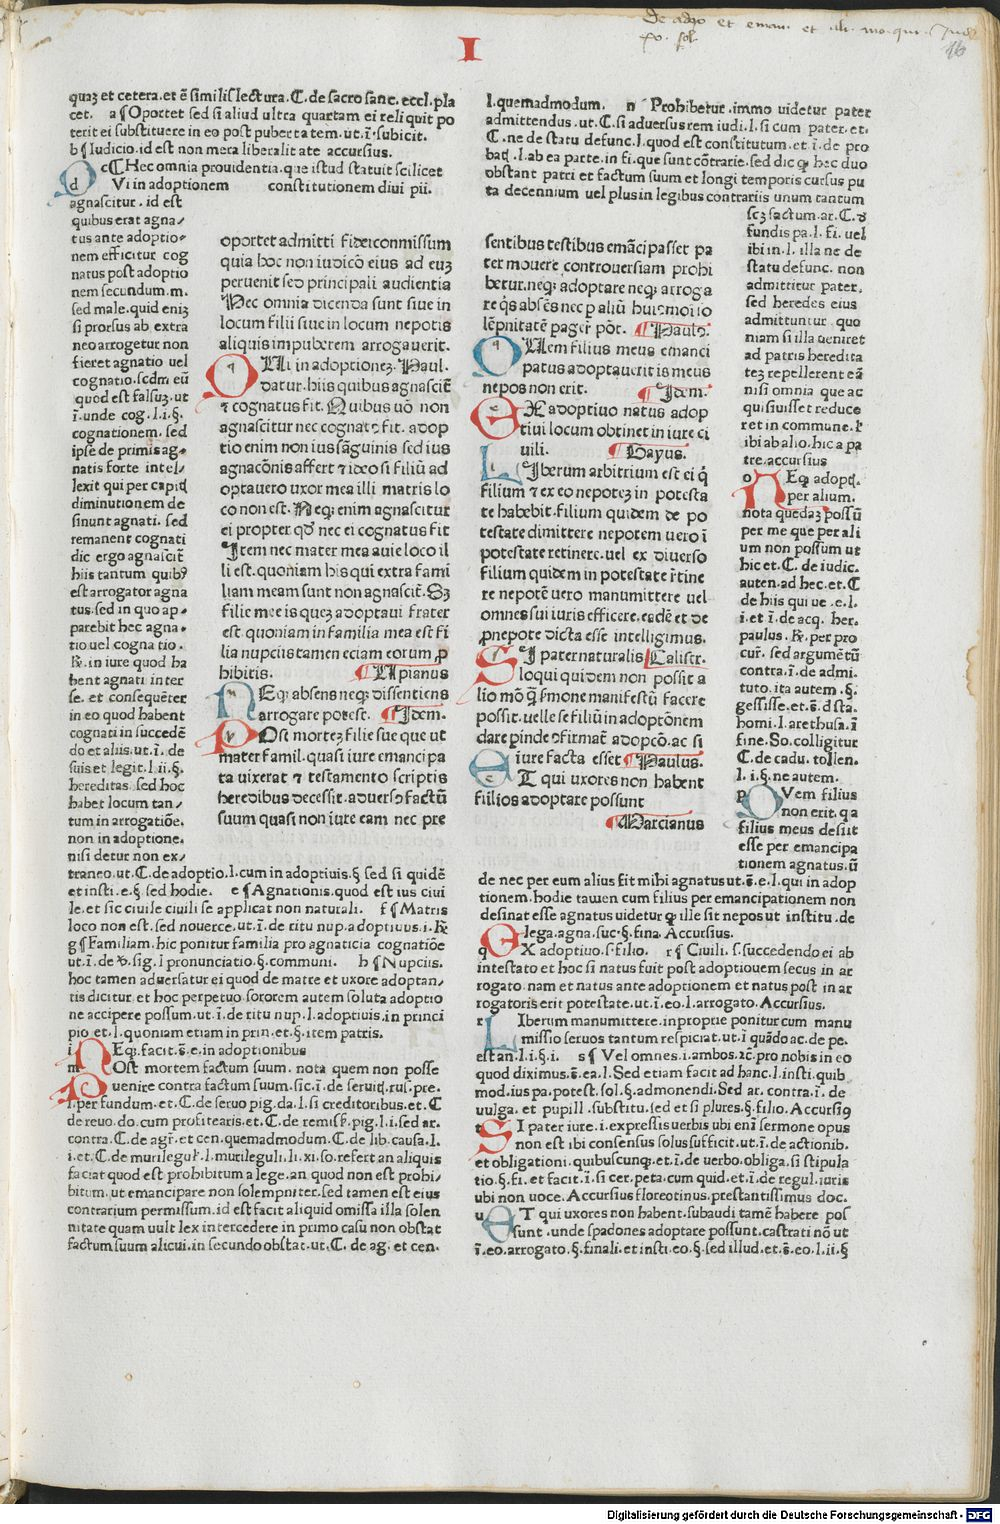 De adop et eman. et
I
16
quaʒ et cetera. et ē similis lectura. C. de sacro sanc. eccl. pla
cet. a ¶ Oportet sed si aliud ultra quartam ei reliquit po
terit ei substituere in eo post pubertatem. ut. ī. subicit.
b ¶ Iudicio. id est non mera liberalitate accursius.
c ¶ Hec omnia prouidentia. que istud statuit scilicet
d Vi in adoptionem constitutionem diui pii.
agnascitur. id est
quibus erat agna/
tus ante adoptio/
nem efficitur cog
natus post adoptio
nem secundum. m.
sed male. quid eniʒ
si prorsus ab extra
neo arrogetur non
fieret agnatio uel
cognatio. scdm eū
quod est falsuʒ. ut
ī. unde cog. l. i. §.
cognationem. sed
ipse de primis ag/
natis forte intel/
lexit qui per capitꝭ
diminutionem de
sinunt agnati. sed
remanent cognati
dic ergo agnascit̄
hiis tantum quibꝰ
est arrogator agna
tus. sed in quo ap/
parebit hec agna/
tio uel cognatio.
R̄. in iure quod ha
bent agnati inter
se. et consequēter
in eo quod habent
cognati in succedē
do et aliis. ut. ī. de
suis et legit. l. ii. §.
hereditas. sed hoc
habet locum tan/
tum in arrogatiōe.
non in adoptione.
nisi detur non ex/
traneo. ut. C. de adoptio. l. cum in adoptiuis. § sed si quidē
et insti. e. § sed hodie. e ¶ Agnationis. quod est ius ciui
le. et sic ciuile ciuili se applicat non naturali. f ¶ Matris
loco non est. sed nouerce. ut. ī. de ritu nup. adoptiuus. i. R̄
g ¶ Familiam. hic ponitur familia pro agnaticia cognatiōe
ut. ī. de v̄. sig. ī pronunciatio. §. communi. h ¶ Nupciis.
hoc tamen aduersatur ei quod de matre et uxore adoptan/
tis dicitur et hoc perpetuo sororem autem soluta adoptio
ne accipere possum. ut. ī. de ritu nup. l. adoptiuis. in princi
pio et. l. quoniam etiam in prin. et. §. item patris.
i NEqꝫ. facit. s̄. e. in adoptionibus
m POst mortem factum suum. nota quem non posse
uenire contra factum suum. sic. ī. de seruitꝭ. rus. pre.
l. per fundum. et. C. de seruo pig. da. l. si creditoribus. et. C
de reuo. do. cum profitearis. et. C. de remiss. pig. l. i. sed ar.
contra. C. de agr̄. et cen. quemadmodum. C. de lib. causa. l.
i. et. C. de murilegul. l. murileguli. li. xi. so. refert an aliquis
faciat quod est prohibitum a lege. an quod non est prohi/
bitum. ut emancipare non solempniter. sed tamen est eius
contrarium permissum. id est facit aliquid omissa illa solen
nitate quam uult lex intercedere in primo casu non obstat
factum suum alicui. in secundo obstat. ut. C. de ag. et cen.
oportet admitti fideiconmissum
quia hoc non iudicō eius ad euʒ
peruenit sed principali audientia
Hec omnia dicenda sunt siue in
locum filii siue in locum nepotis
aliquis impuberem arrogauerit.
QUi in adoptioneʒ. Paul.
datur. hiis quibus agnascit̄
⁊ cognatus fit. Quibus uō non
agnascitur nec cognatꝰ fit. adop
tio enim non ius sāguinis sed ius
agnacōnis affert ⁊ ideo si filiū ad
optauero uxor mea illi matris lo
co non est. Neqꝫ enim agnascitur
ei propter qđ nec ei cognatus fit
Item nec mater mea auie loco il
li est. quoniam his qui extra fami
liam meam sunt non agnascit̄. Sʒ
filie mee is queʒ adoptaui frater
est. quoniam in familia mea est fi
lia nupciis tamen eciam eorum ꝓ
hibitis. ¶ Ulpianus
NEqꝫ absens neqꝫ dissentiens
arrogare potest. ¶ Idem.
POst morteʒ filie sue que ut
mater famil. quasi iure emancipa
ta uixerat ⁊ testamento scriptis
heredibus decessit. aduersꝰ factū
suum quasi non iure eam nec pre
l. quemadmodum. n Prohibetur. immo uidetur pater
admittendus. ut. C. si aduersus rem iudi. l. si cum pater. et.
C. ne de statu defunc. l. quod est constitutum. et. ī. de pro
batꝭ. l. ab ea parte. in fi. que sunt cōtrarie. sed dic ꝙ hec duo
obstant patri et factum suum et longi temporis cursus pu
ta decennium uel plus in legibus contrariis unum tantum
scʒ factum. ar. C. d̄
fundis pa. l. fi. uel
ibi in. l. illa ne de
statu defunc. non
admittitur pater.
sed heredes eius
admittuntur. quo
niam si illa ueniret
ad patris heredita
teʒ repellerent eā
nisi omnia que ac
quisiuisset reduce
ret in commune. s̄
ibi ab alio. hic a pa
tre. accursius
o NEqꝫ adoptꝭ.
per alium.
nota quedaʒ possū
per me que per ali
um non possum ut
hic et. C. de iudic.
auten. ad hec. et. C
de hiis qui ue. e. l.
i. et. ī. de acq. her.
paulus. R̄. per pro
cur̄. sed argumētū
contra. ī. de admi.
tuto. ita autem. §.
gessisse. et. s̄. d̄ sta.
homi. l. arethusa. ī
fine. So. colligitur
C. de cadu. tollen.
l. i. §. ne autem.
p QVem filius
non erit. qa
filius meus desiit
esse per emancipa
tionem agnatus. ū
de nec per eum alius fit mihi agnatus ut. s̄. e. l. qui in adop
tionem. hodie tamen cum filius per emancipationem non
desinat esse agnatus uidetur ꝙ ille sit nepos ut institu. de
lega. agna. suc. §. fina. Accursius.
q EX adoptiuo. s. filio. r ¶ Ciuili. s. succedendo ei ab
intestato et hoc si natus fuit post adoptiouem secus in ar
rogato nam et natus ante adoptionem et natus post in ar
rogatoris erit potestate. ut. ī. eo. l. arrogato. Accursius.
r LIberum manumittere. inproprie ponitur cum manu
missio seruos tantum respiciat. ut ī quādo ac. de pe.
est an. l. i. §. i. s ¶ Vel omnes. i. ambos. ꝛc̄. pro nobis in eo
quod diximus. s̄. ea. l. Sed etiam facit ad hanc. l. insti. quib
mod. ius pa. potest. sol. §. admonendi. Sed ar. contra. ī. de
uulga. et pupill. substitu. sed et si plures. §. filio. Accursiꝰ
t SI pater iure. i. expressis uerbis ubi enī sermone opus
non est ibi consensus solus sufficit. ut. ī. de actionib.
et obligationi. quibuscunqꝫ. et. ī. de uerbo. obliga. si stipula
tio. §. fi. et facit. ī. si cer. peta. cum quid. et. ī. de regul. iuris
ubi non uoce. Accursius floreotinus. prestantissimus doc.
u ET qui uxores non habent. subaudi tamē habere pos
sunt. unde spadones adoptare possunt. castrati nō ut
ī. eo. arrogato. §. finali. et insti. eo. §. sed illud. et. s̄. eo. l. ii. §
sentibus testibus emācipasset pa
ter mouere controuersiam prohi
betur. neqꝫ adoptare neqꝫ arroga
re q̄s absēs nec p aliū huiꝰmoi so
lēpnitatē pager̄ pōt. ¶ Paulꝰ.
QUem filius meus emanci
patus adoptauerit is meus
nepos non erit. ¶ Idem.
EX adoptiuo natus adop
tiui locum obtinet in iure ci
uili. ¶ Gayus.
LIberum arbitrium est ei q̄
filium ⁊ ex eo nepoteʒ in potesta
te habebit. filium quidem de po
testate dimittere nepotem uero ī
potestate retinere. uel ex diuerso
filium quidem in potestate r̄tine
re nepotē uero manumittere uel
omnes sui iuris efficere. eadē et de
ꝓnepote dicta esse intelligimus.
SI pater naturalis ¶ Calistr.
loqui quidem non possit a
lio mō ꝗ̄ sermone manifestū facere
possit. uelle se filiū in adoptōnem
dare perinde ꝯfirmat̄ adopcō. ac si
iure facta esset ¶ Paulus.
ET qui uxores non habent
filios adoptare possunt
¶ Marcianus
Digitalisierung gefördert durch die Deutsche Forschungsgemeinschaft - DFG